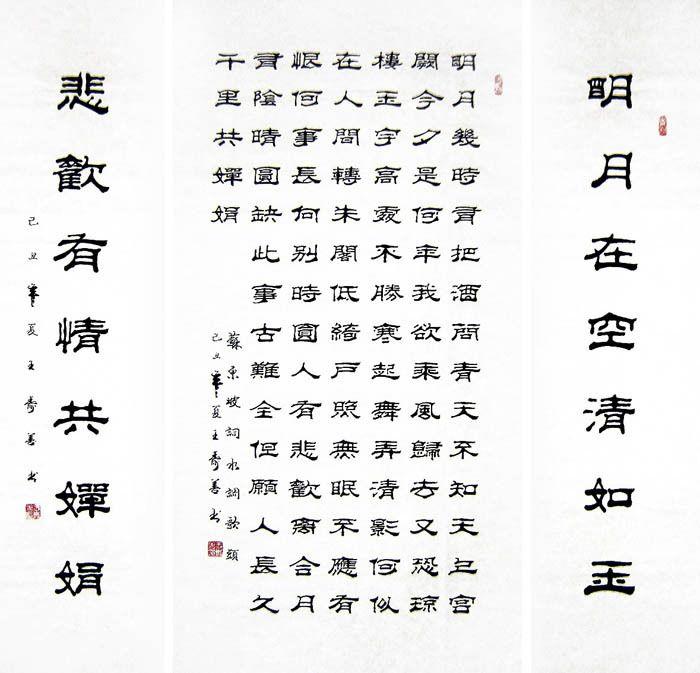 明月在空清如玉
明月幾時有把酒問青天不知天上宮
闕今夕是何年我欲乘風歸去又恐琼
樓玉宇高處不勝寒起舞弄清影何似
在人間轉朱閣低綺戶照無眠不應有
恨何事長向別時圓人有悲歡離合月
有陰晴圓缺此事古難全但願人長久
千里共嬋娟
蘇東坡詞水調歌頭
己丑夏王善书
悲歡有情共嬋娟
己丑夏王善书